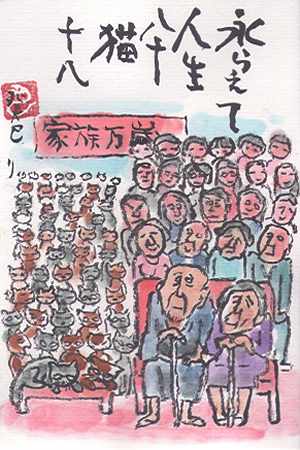 永らえて
人生
八十
猫
十八
家族万歳